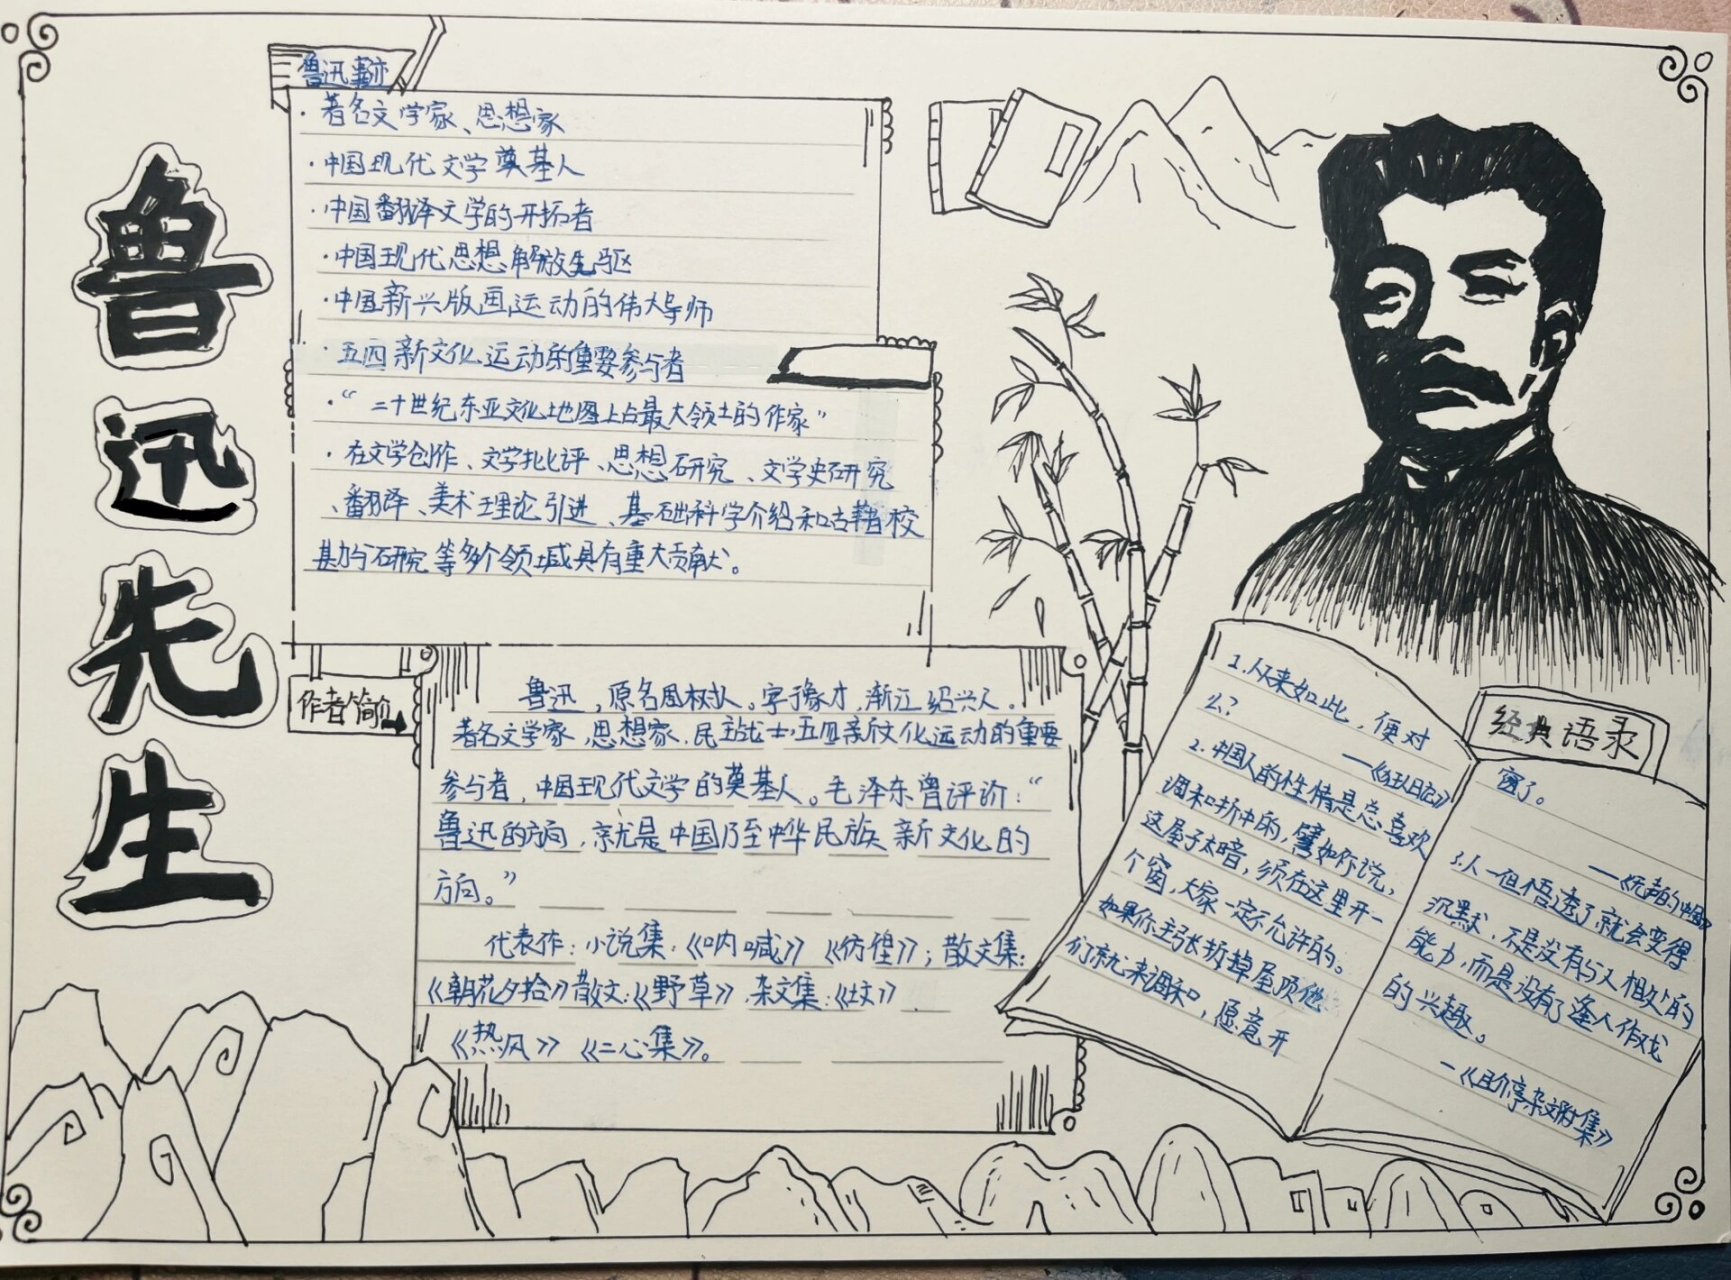 鲁迅先生
鲁迅事迹
·著名文学家、思想家
·中国现代文学奠基人
·中国翻译文学的开拓者
·中国现代思想解放先驱
·中国新兴版画运动的伟大导师
·五四新文化运动的重要参与者
·“二十世纪东亚文化地图上占最大领土的作家”
·在文学创作、文学批评、思想研究、文学史研究
、翻译、美术理论引进、基础科学介绍和古籍校
勘与研究等多个领域具有重大贡献。
作者简介
鲁迅，原名周树人。字豫才，浙江绍兴人。
著名文学家，思想家，民主战士，五四新文化运动的重要
参与者，中国现代文学的奠基人。毛泽东曾评价：“
鲁迅的方向，就是中国乃至中华民族新文化的
方向。”
代表作：小说集：《呐喊》《彷徨》；散文集：
《朝花夕拾》散文：《野草》，杂文集：《坟》
《热风》《二心集》。
经典语录
1.从来如此，便对
么？
——《狂人日记》
2.中国人的性情是总喜欢
调和折中的，譬如你说，
这屋子太暗，须在这里开一
个窗，大家一定不允许的。
如果你主张拆掉屋顶他
们就来调和，愿意开
窗了。
——《无声的中国》
3.人一但悟透了就会变得
沉默，不是没有与人相处的
能力，而是没有了逢人作戏
的兴趣。
—《且介亭杂文附集》